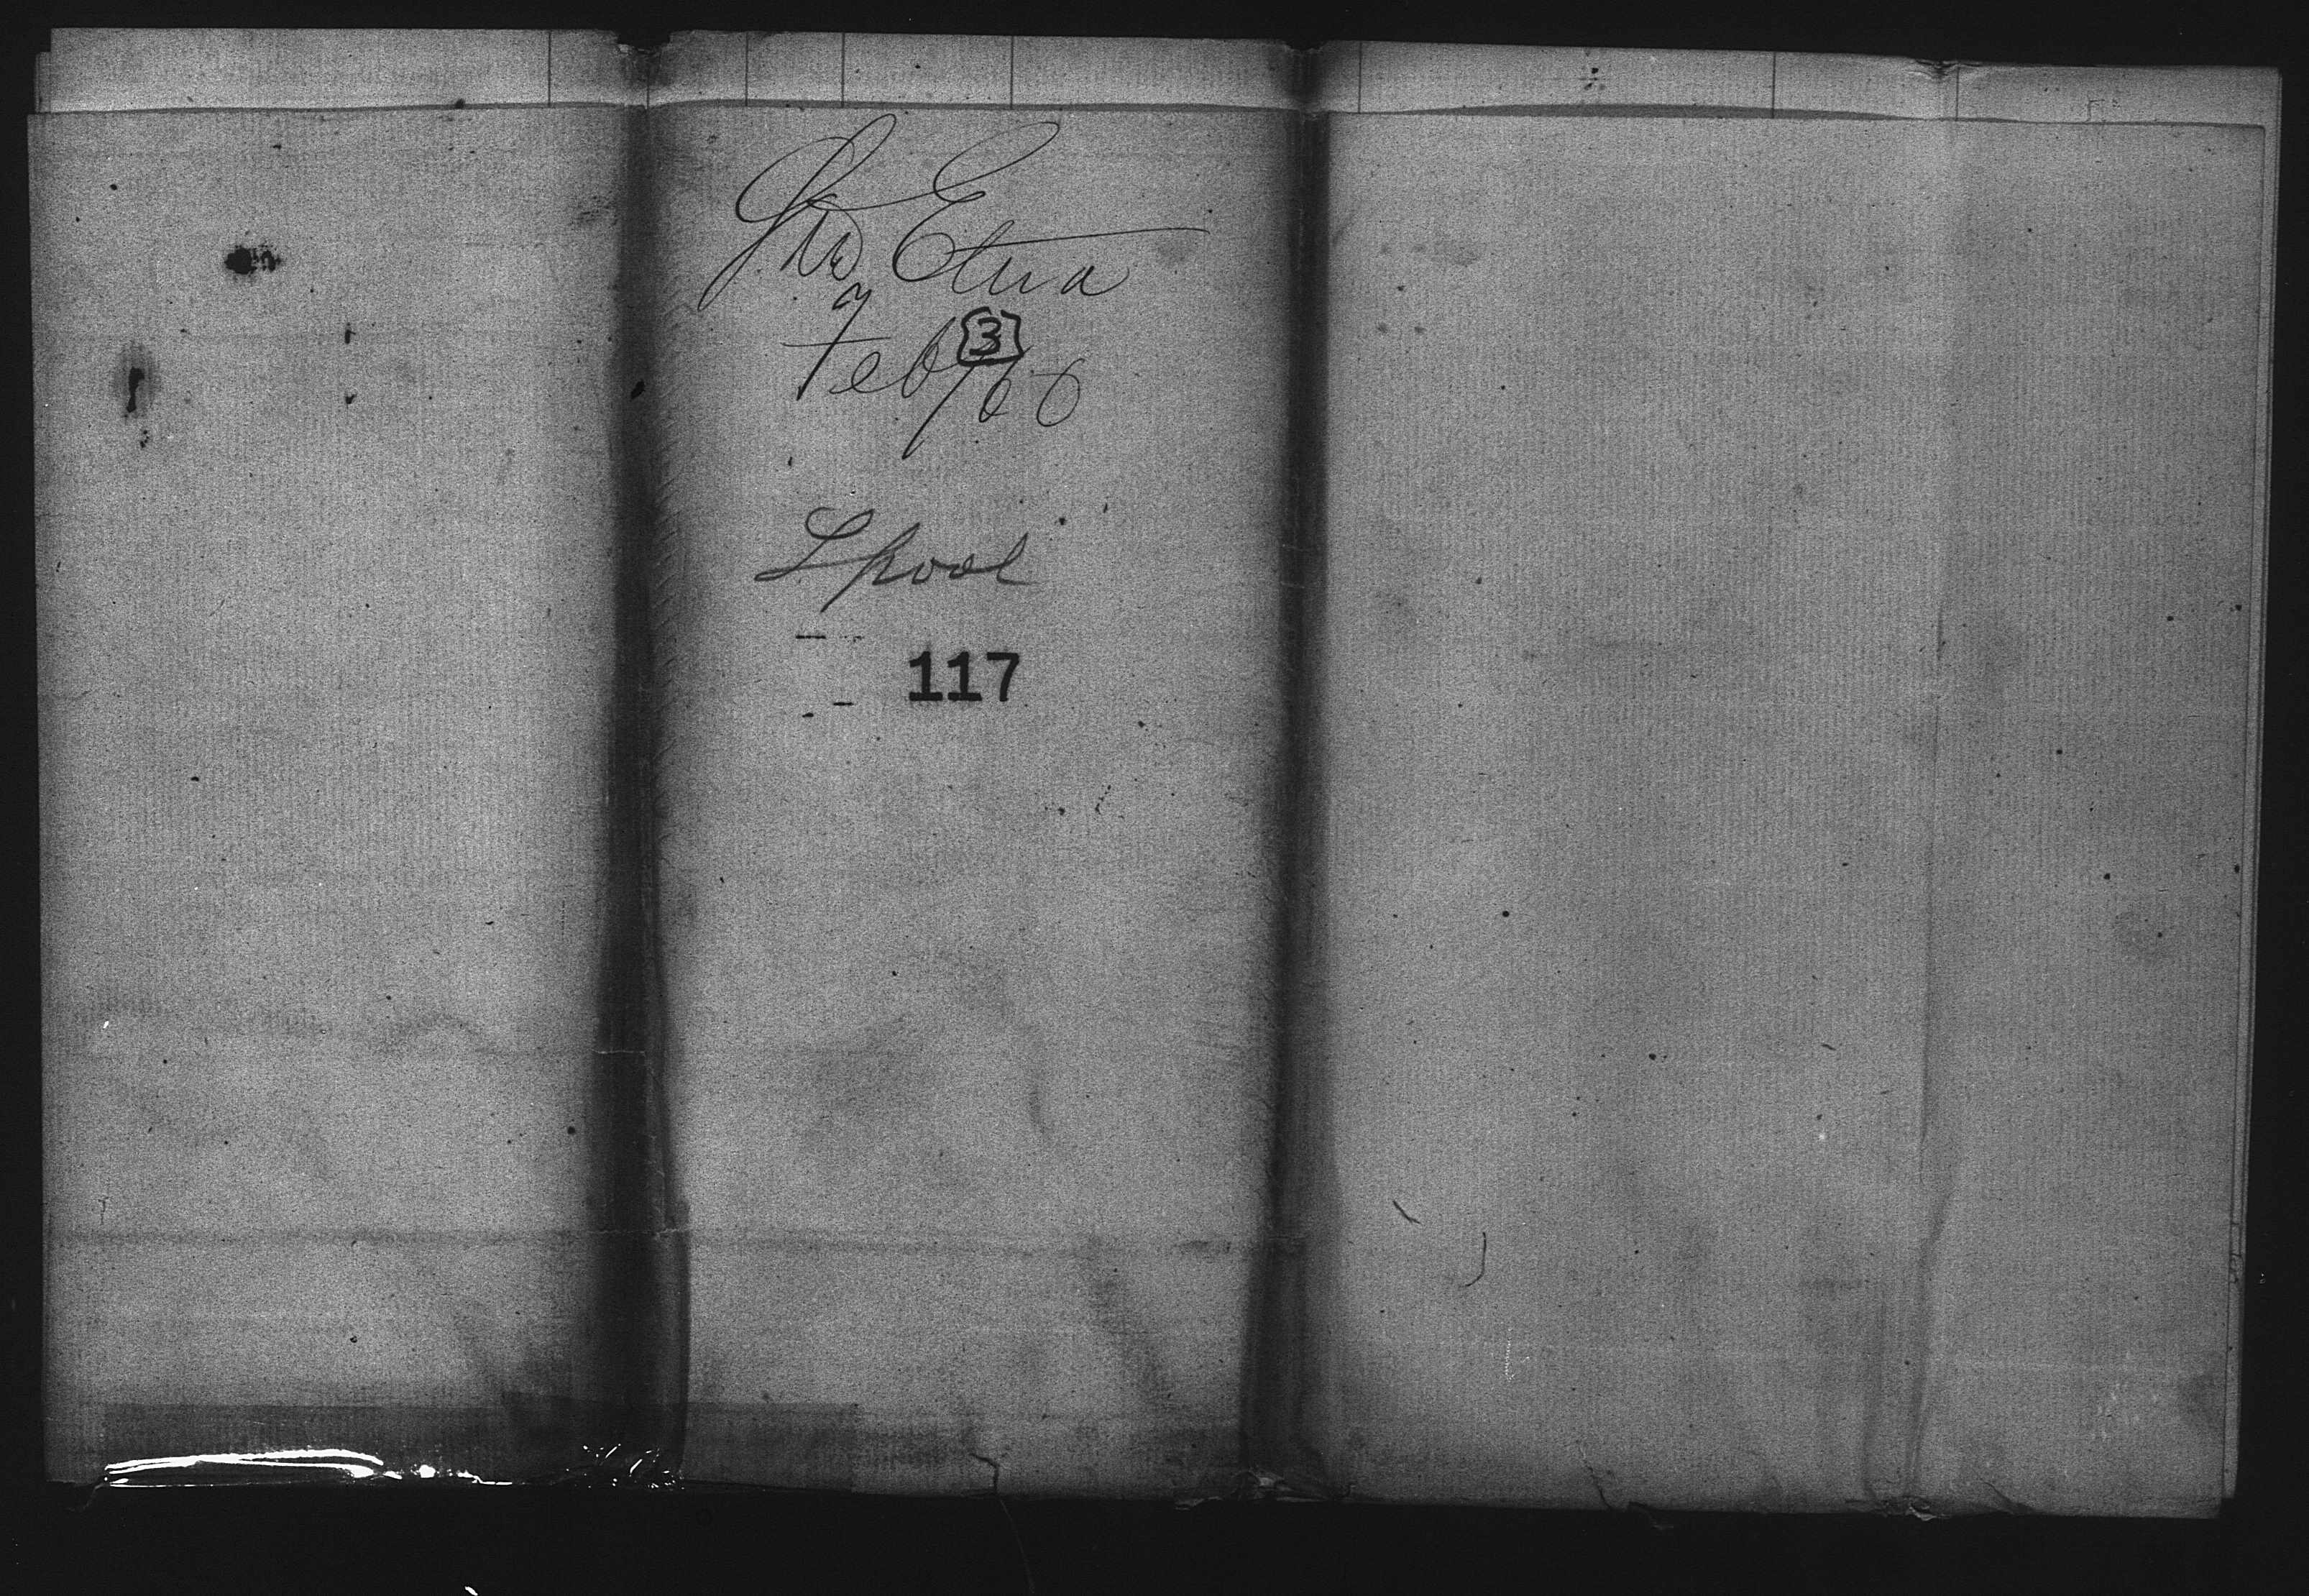 Etna
[3]
Feb/66
Lpool
117